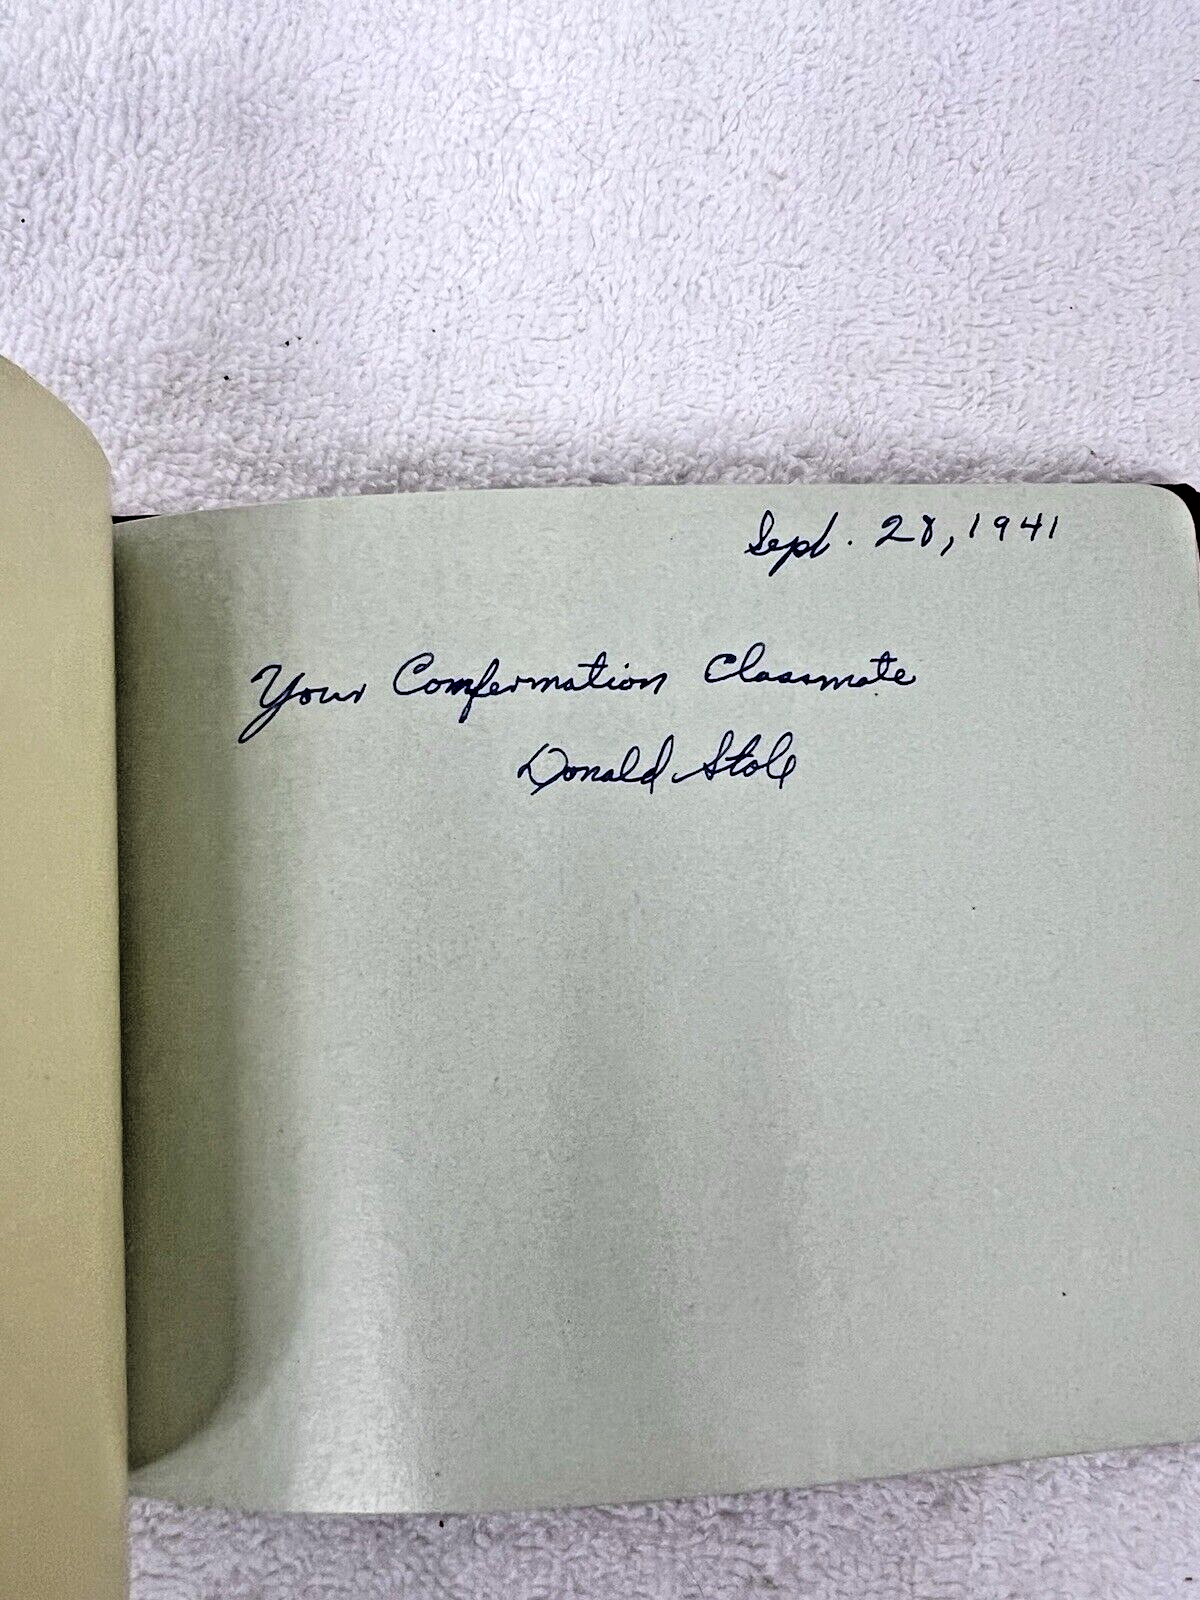 Sept. 28, 1941
Your Comfermation Classmate
Donald Stole